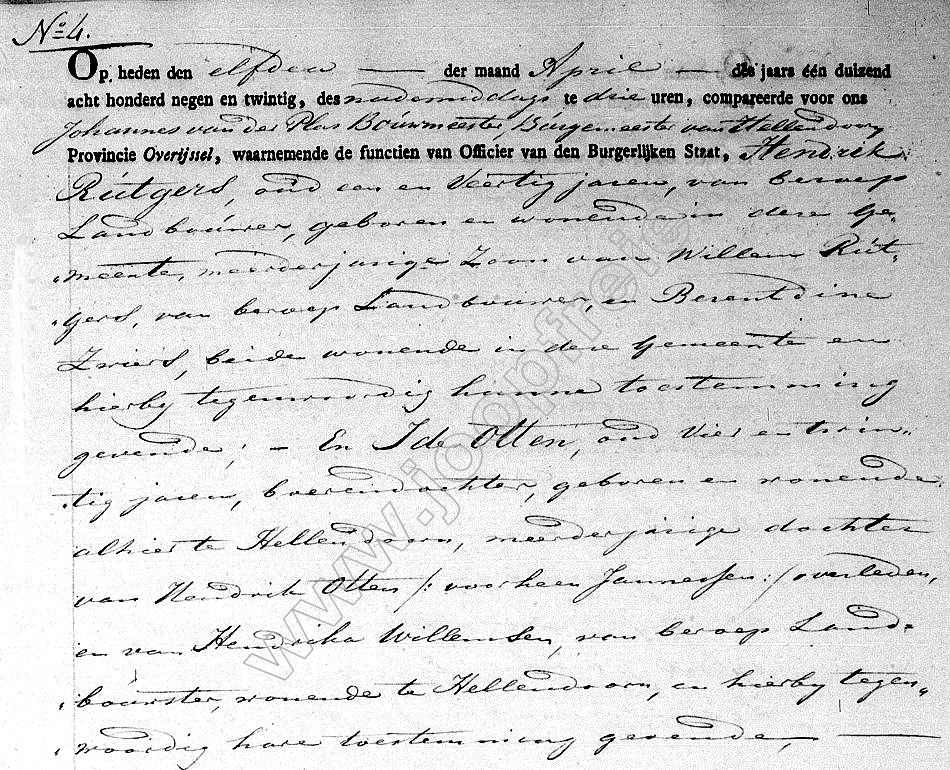 No. 4.
Op heden den elfden der maand April des jaars één duizend
acht honderd negen en twintig, des nademiddags te drie uren, compareerde voor ons
Johannes van der Plas Bouwmeester Burgemeester van Hellendoorn
Provincie Overijssel, waarnemende de functien van Officier van den Burgerlijken Staat, Hendrik
Rútgers, oud een en Veertig jaren, van beroep
Landboúwer, geboren en wonende in deze Ge-
„meente, meerderjarige Zoon van Willem Rút-
„gers, van beroep Landbouwer, en Berentdine
Zwiers, beide wonende in deze Gemeente en
hierby tegenwoordig hunne toestemming
gevende; – En Ide Otten, oud Vier en twin-
„tig jaren, boerendochter, geboren en wonende
alhier te Hellendoorn, meerderjarige dochter
van Hendrik Otten /: voorheen Jannessen :/ overleden,
en van Hendrika Willemsen, van beroep Land-
„bouwster, wonende te Hellendoorn, en hierby tegen„
„woordig hare toestemming gevende, —
www.joopfreie